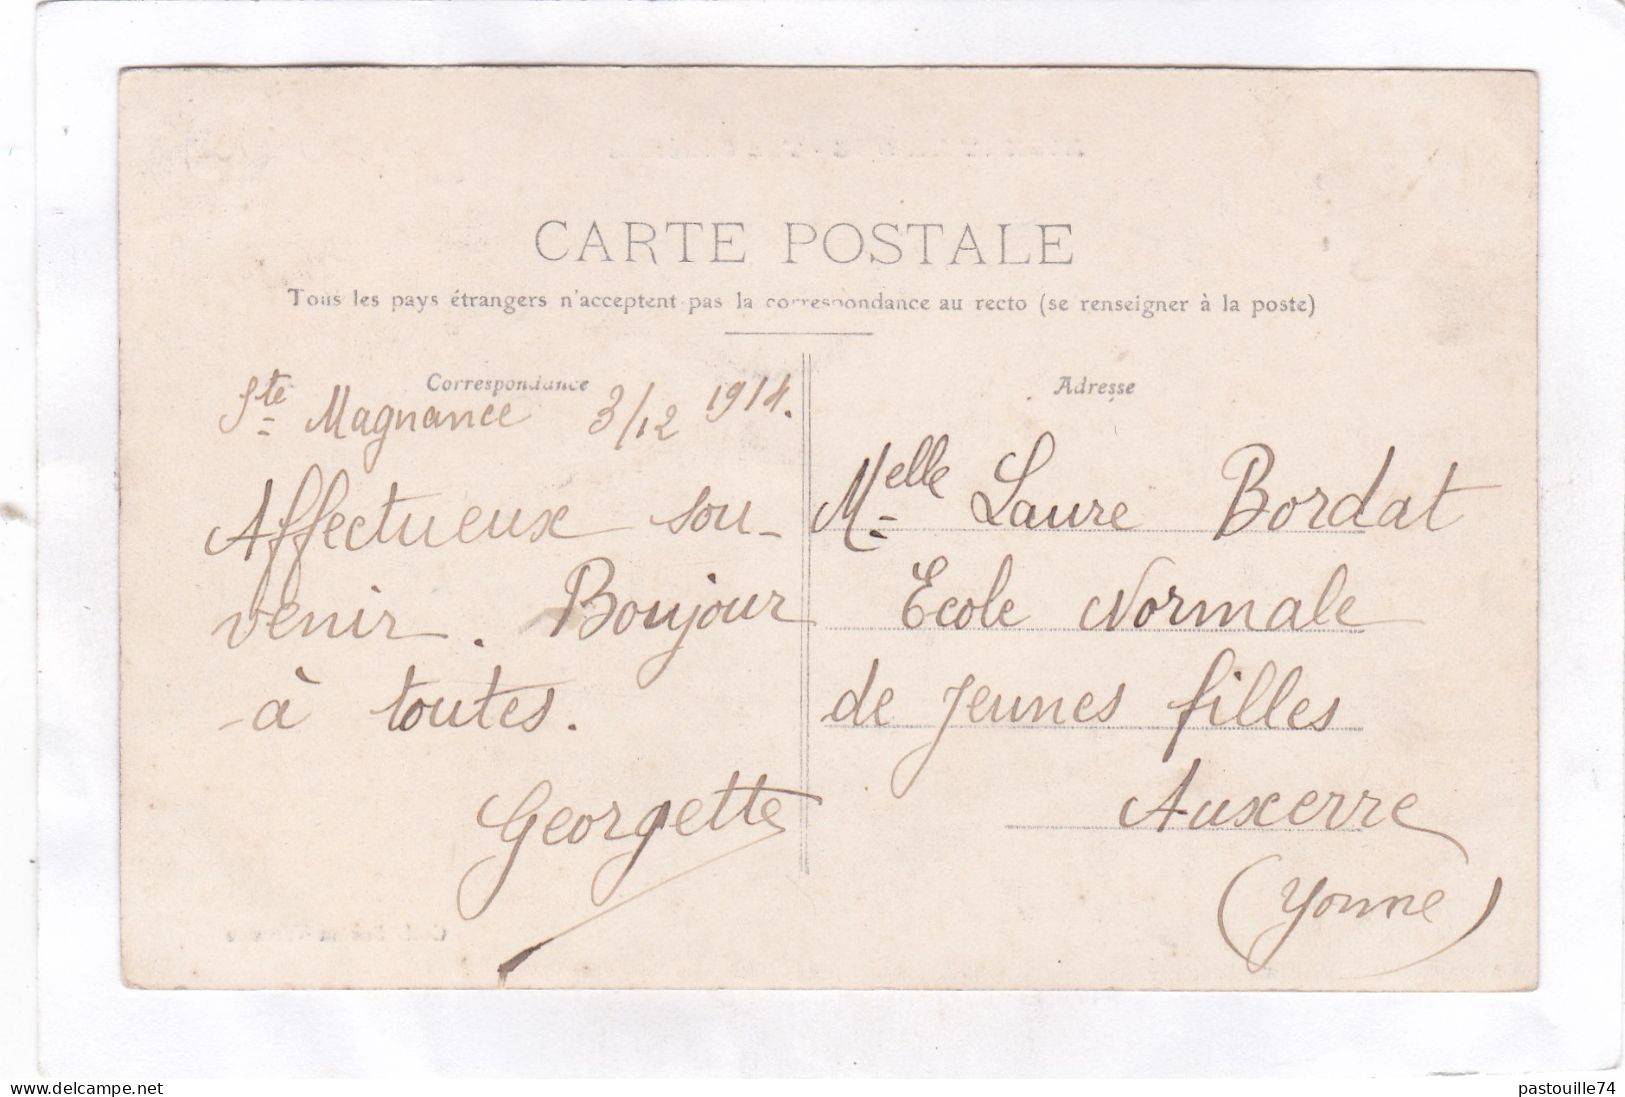 CARTE POSTALE
Tous les pays étrangers n'acceptent pas la correspondance au recto (se renseigner à la poste)
Correspondance
Ste Magnance 3/12 1914.
Affectueux sou-
venir. Bonjour
à toutes.
Georgette
Adresse
Melle Laure Bordat
Ecole Normale
de Jeunes filles
Auxerre
(Yonne)
www.delcampe.net
pastouille74